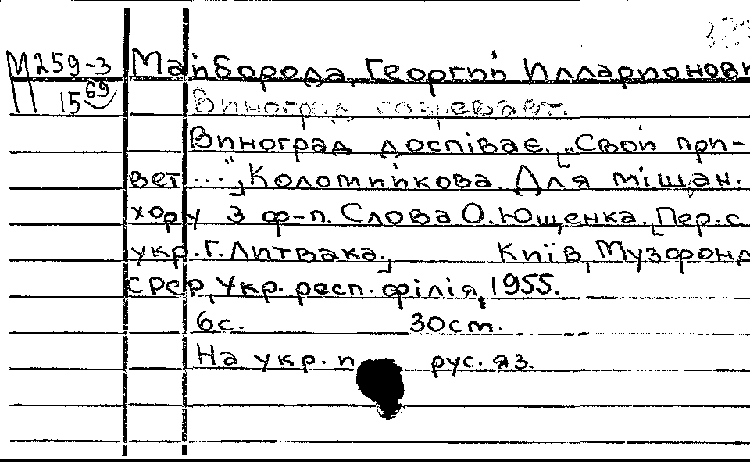 М259-3 Майборода, Георгий Илларионови
1569
Виноград созревает.
Виноград доспіває. [„Свой при-
вет..."], Коломийкова. Для мішан.
хору з ф-п. Слова О. Ющенка. [Пер. с
укр. Г. Литвака.] Київ, Музфонд
СРСР, Укр. респ. філія, 1955.
6с. 30см.
На укр. рус. яз.